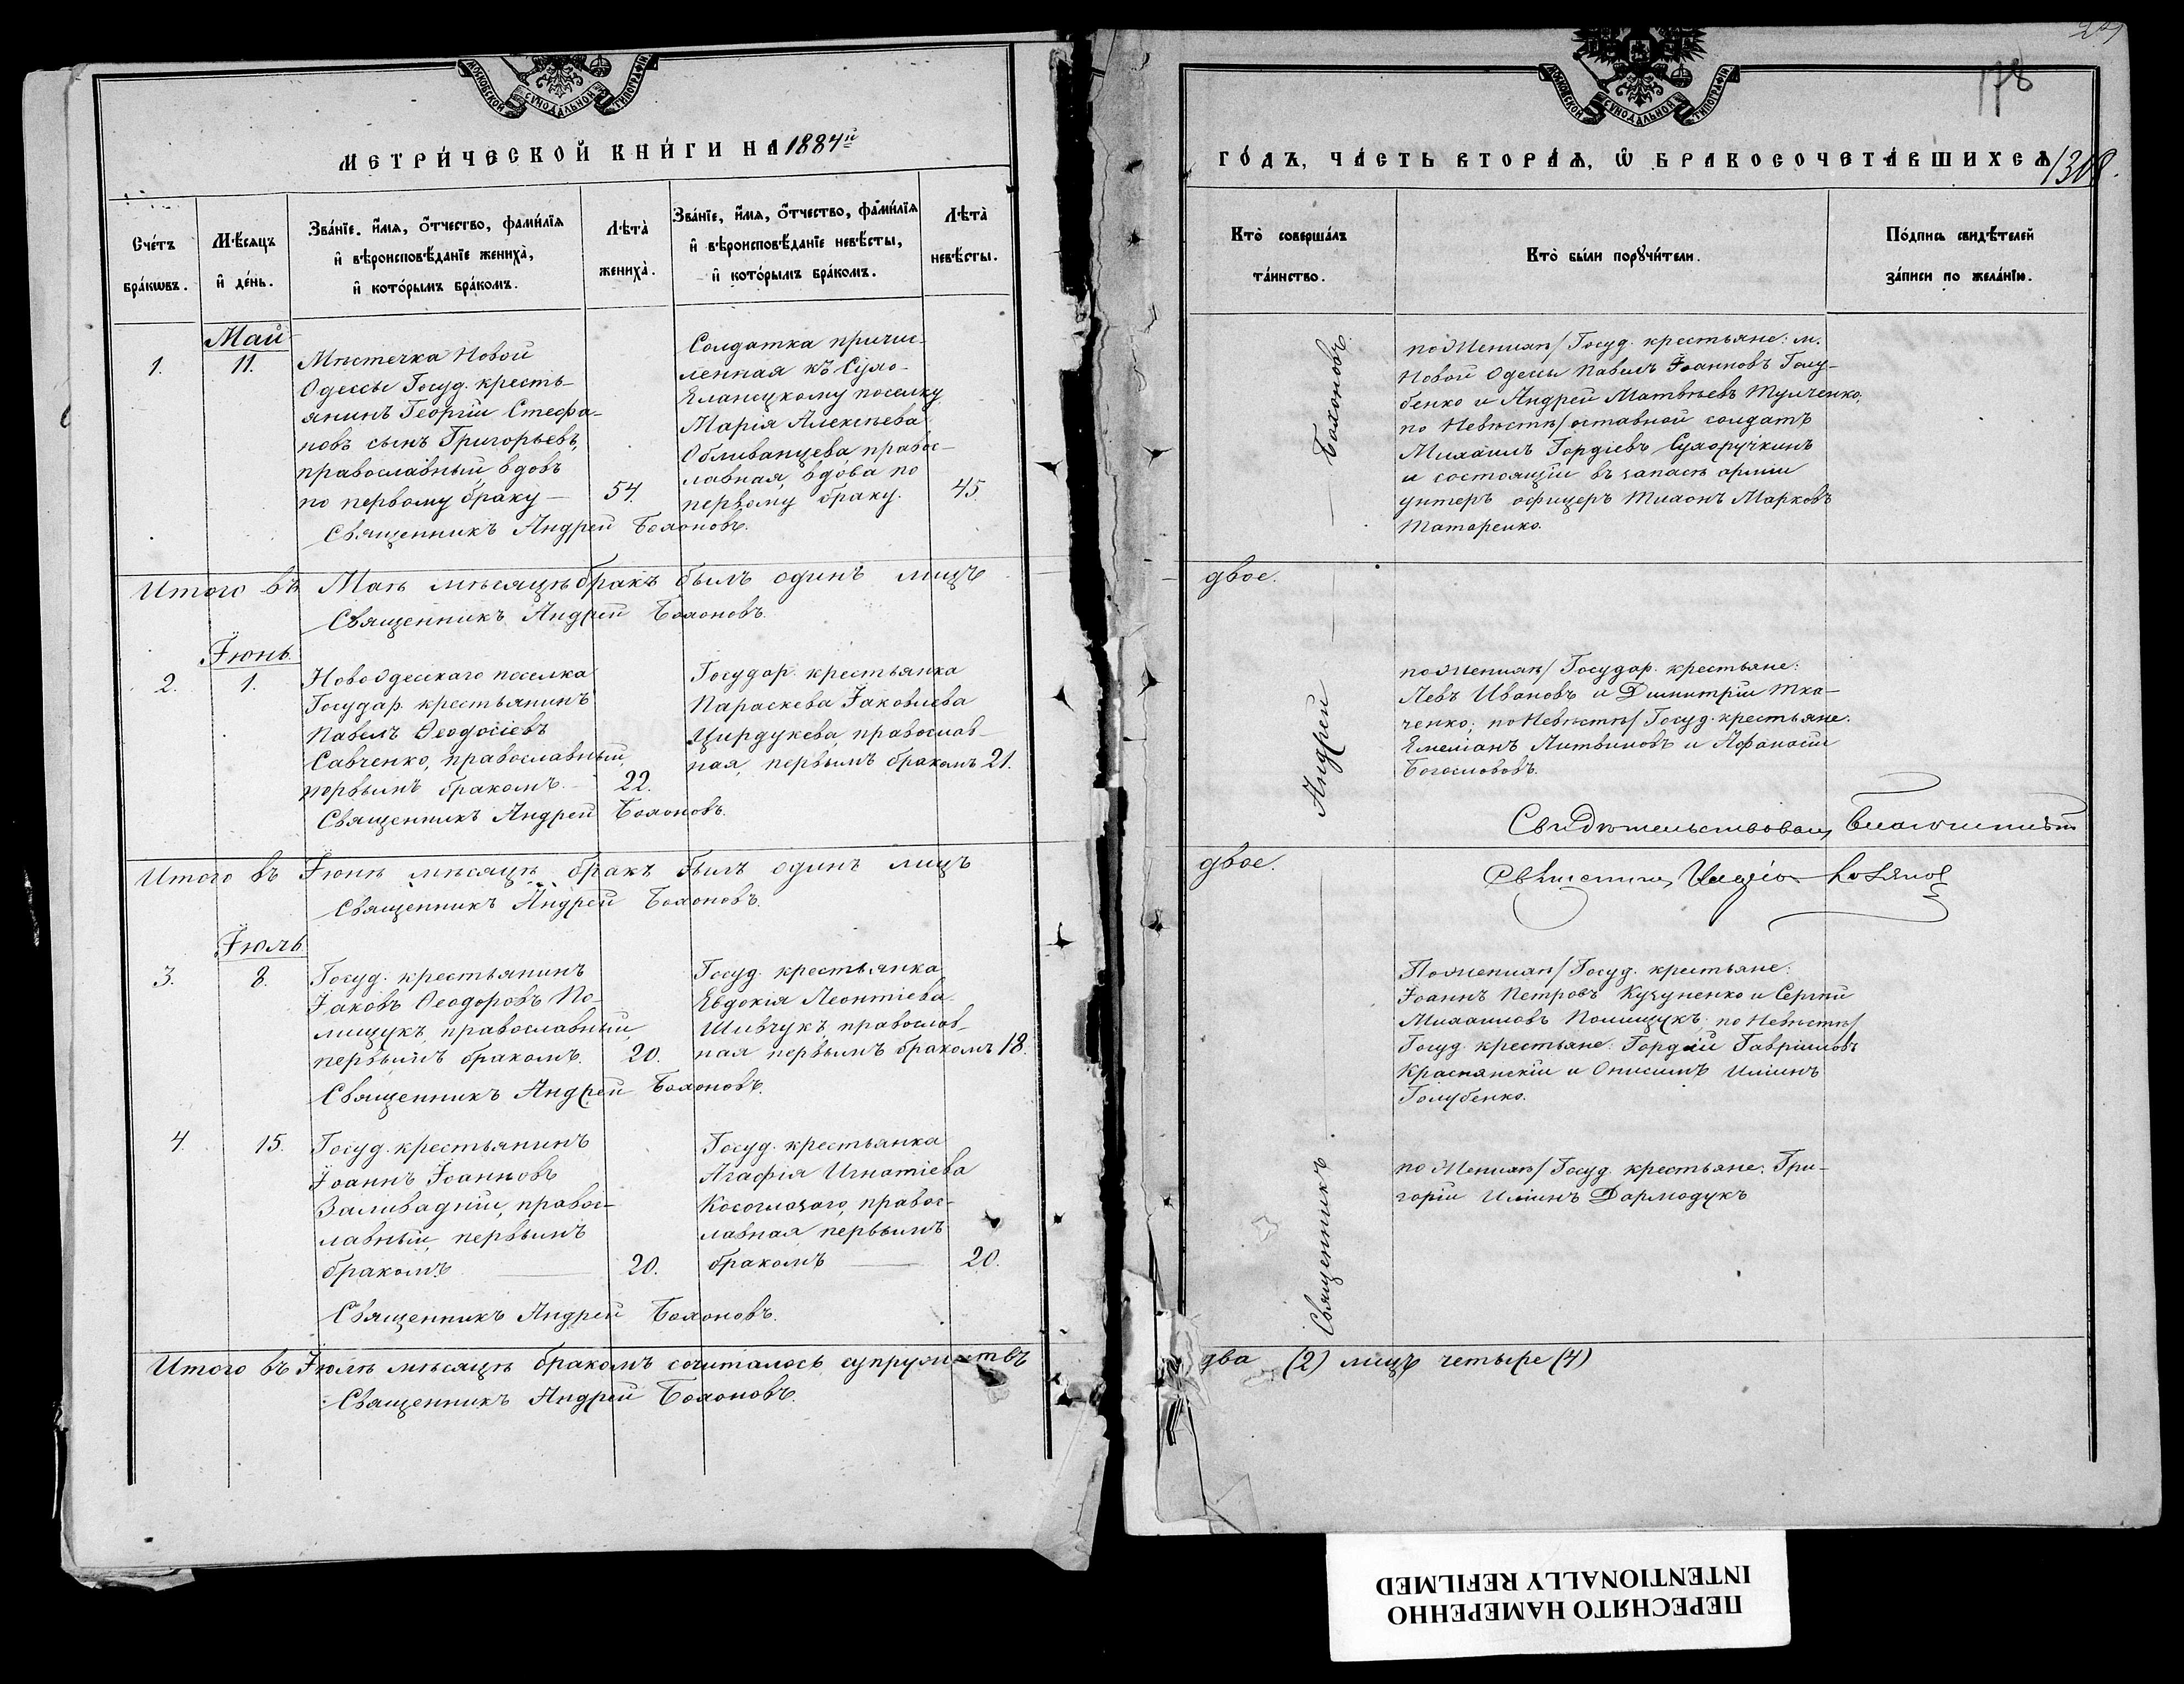 МОСКОВСКОЙ СУНОДАЛЬНОЙ ТИПОГРАФІИ
МЕТРИ́ЧЕСКОЙ КНИ́ГИ НА 1884й
Сче́тъ бра́кѡвъ.
Мѣ́сяцъ и҆ де́нь.
Зва́нїе, и҆́мѧ, ѻ҆́тчество, фами́лїѧ
и҆ вѣроисповѣ́данїе женихà,
и҆ кото́рымъ бра́комъ.
Лѣтà женихà.
Зва́нїе, и҆́мѧ, ѻ҆́тчество, фами́лїѧ
и҆ вѣроисповѣ́данїе невѣ́сты,
и҆ кото́рымъ бра́комъ.
Лѣтà невѣ́сты.
Май
1.
11.
Мѣстечка Новой
Одессы Госуд. кресть-
янинъ Георгій Стефа-
новъ сынъ Григорьевъ,
православный, вдовъ
по первому браку —
54.
Солдатка причис-
ленная къ Сухо-
Еланецкому поселку
Марія Алексѣева
Обливанцева, правос-
лавная, вдова по
первому браку.
45.
Священникъ Андрей Бохоновъ.
Итого въ Маѣ мѣсяцѣ бракъ былъ одинъ лицъ
Священникъ Андрей Бохоновъ.
Іюнь.
2.
1.
Новоодесскаго поселка
Государ. крестьянинъ
Павелъ Ѳеодосіевъ
Савченко, православный,
первымъ бракомъ. —
22.
Государ. крестьянка
Параскева Іаковлева
Цирдукева, православ-
ная, первымъ бракомъ
21.
Священникъ Андрей Бохоновъ.
Итого въ Іюнѣ мѣсяцѣ бракъ былъ одинъ лицъ
Священникъ Андрей Бохоновъ.
Іюль
3.
8.
Госуд. крестьянинъ
Іаковъ Ѳеодоровъ По-
лищукъ, православный,
первымъ бракомъ.
20.
Госуд. крестьянка
Евдокія Леонтіева
Шивчукъ, православ-
ная первымъ бракомъ
18.
Священникъ Андрей Бохоновъ.
4.
15.
Госуд. крестьянинъ
Іоаннъ Іоанновъ
Заливадній, правос-
лавный, первымъ
бракомъ
20.
Госуд. крестьянка
Агафія Игнатіева
Косоглазаго, правос-
лавная первымъ
бракомъ —
20.
Священникъ Андрей Бохоновъ.
Итого въ Іюлѣ мѣсяцѣ бракомъ сочиталось супружествъ
Священникъ Андрей Бохоновъ.
178
МОСКОВСКОЙ СУНОДАЛЬНОЙ ТИПОГРАФІИ
ГО́ДЪ, ЧА́СТЬ ВТОРА́Ѧ, Ѽ БРАКОСОЧЕТА́ВШИХСѦ
1308.
Кто̀ соверша́лъ
та́инство.
Кто̀ бы́ли порꙋчи́тели.
По́дпись свидѣ́телей
за́писи по жела́нїю.
Священникъ Андрей Бохоновъ.
по Женихѣ/ Госуд. крестьяне: м.
Новой Одессы Павелъ Іоанновъ Голу-
бенко и Андрей Матвѣевъ Тулченко,
по Невѣстѣ/ оставной солдатъ
Михаилъ Гордіевъ Сухоручкинъ
и состоящій въ запасѣ арміи
унтеръ офицеръ Тихонъ Марковъ
Татаренко.
двое.
по Женихѣ/ Государ. крестьяне:
Левъ Ивановъ и Димитрій Тка-
ченко; по Невѣстѣ/ Госуд. крестьяне:
Емеліанъ Литвиновъ и Афанасій
Богословъ.
Свидѣтельствовалъ Благочинный
двое.
Священникъ
По Женихѣ/ Госуд. крестьяне:
Іоаннъ Петровъ Кузуненко и Сергій
Михаиловъ Полищукъ; по Невѣстѣ/
Госуд. крестьяне: Гордій Гавріиловъ
Краснянскій и Онисимъ Иліинъ
Голубенко.
по Женихѣ/ Госуд. крестьяне: Гри-
горій Иліинъ Дармодукъ
два (2) лицъ четыре (4)
ПЕРЕСНЯТО НАМЕРЕННО
INTENTIONALLY REFILMED